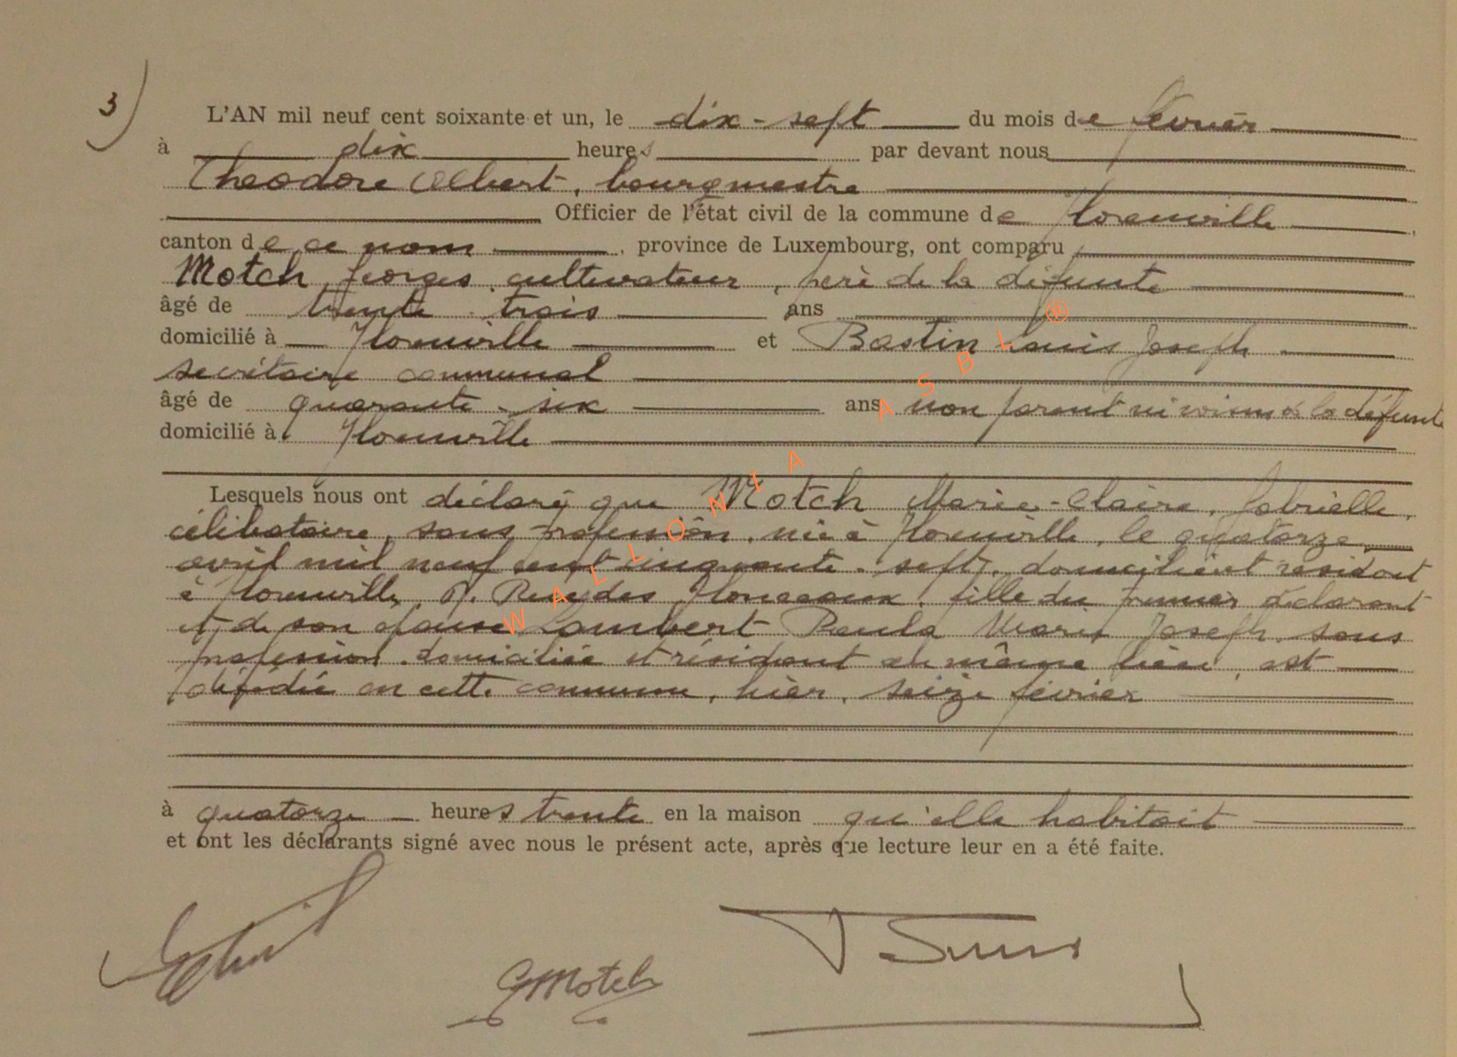 3)
L'AN mil neuf cent soixante et un, le dix-sept du mois de février
à dix heures par devant nous
Théodore Albert, bourgmestre
Officier de l'état civil de la commune de Florenville
canton de ce nom, province de Luxembourg, ont comparu
Motch Georges, cultivateur, père de la défunte
âgé de trente-trois ans
domicilié à Florenville et Bastin Louis Joseph
secrétaire communal
âgé de quarante-six ans non parent ni voisin de la défunte
domicilié à Florenville
Lesquels nous ont déclaré que Motch Marie-Claire, Gabrielle,
célibataire, sans profession, née à Florenville, le quatorze
avril mil neuf cent cinquante-sept, domiciliée et résidant
à Florenville, Rue des, fille du premier déclarant
et de son épouse Lambert Paula Marie Joseph, sans
profession domiciliée et résidant au même lieu, est
décédée en cette commune, hier, seize février
à quatorze heures trente en la maison qu'elle habitait
et ont les déclarants signé avec nous le présent acte, après que lecture leur en a été faite.
GMotch
WALLONIA ASBL ®